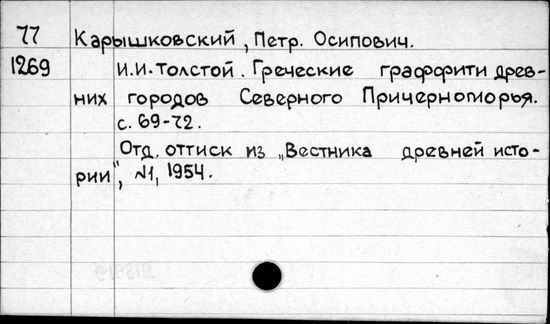 77
1269
Карышковский, Петр. Осипович.
И.И. Толстой. Греческие граффити древ-
них городов Северного Причерноморья.
с. 69-72.
Отд. оттиск из „Вестника древней исто-
рии", №1, 1954.